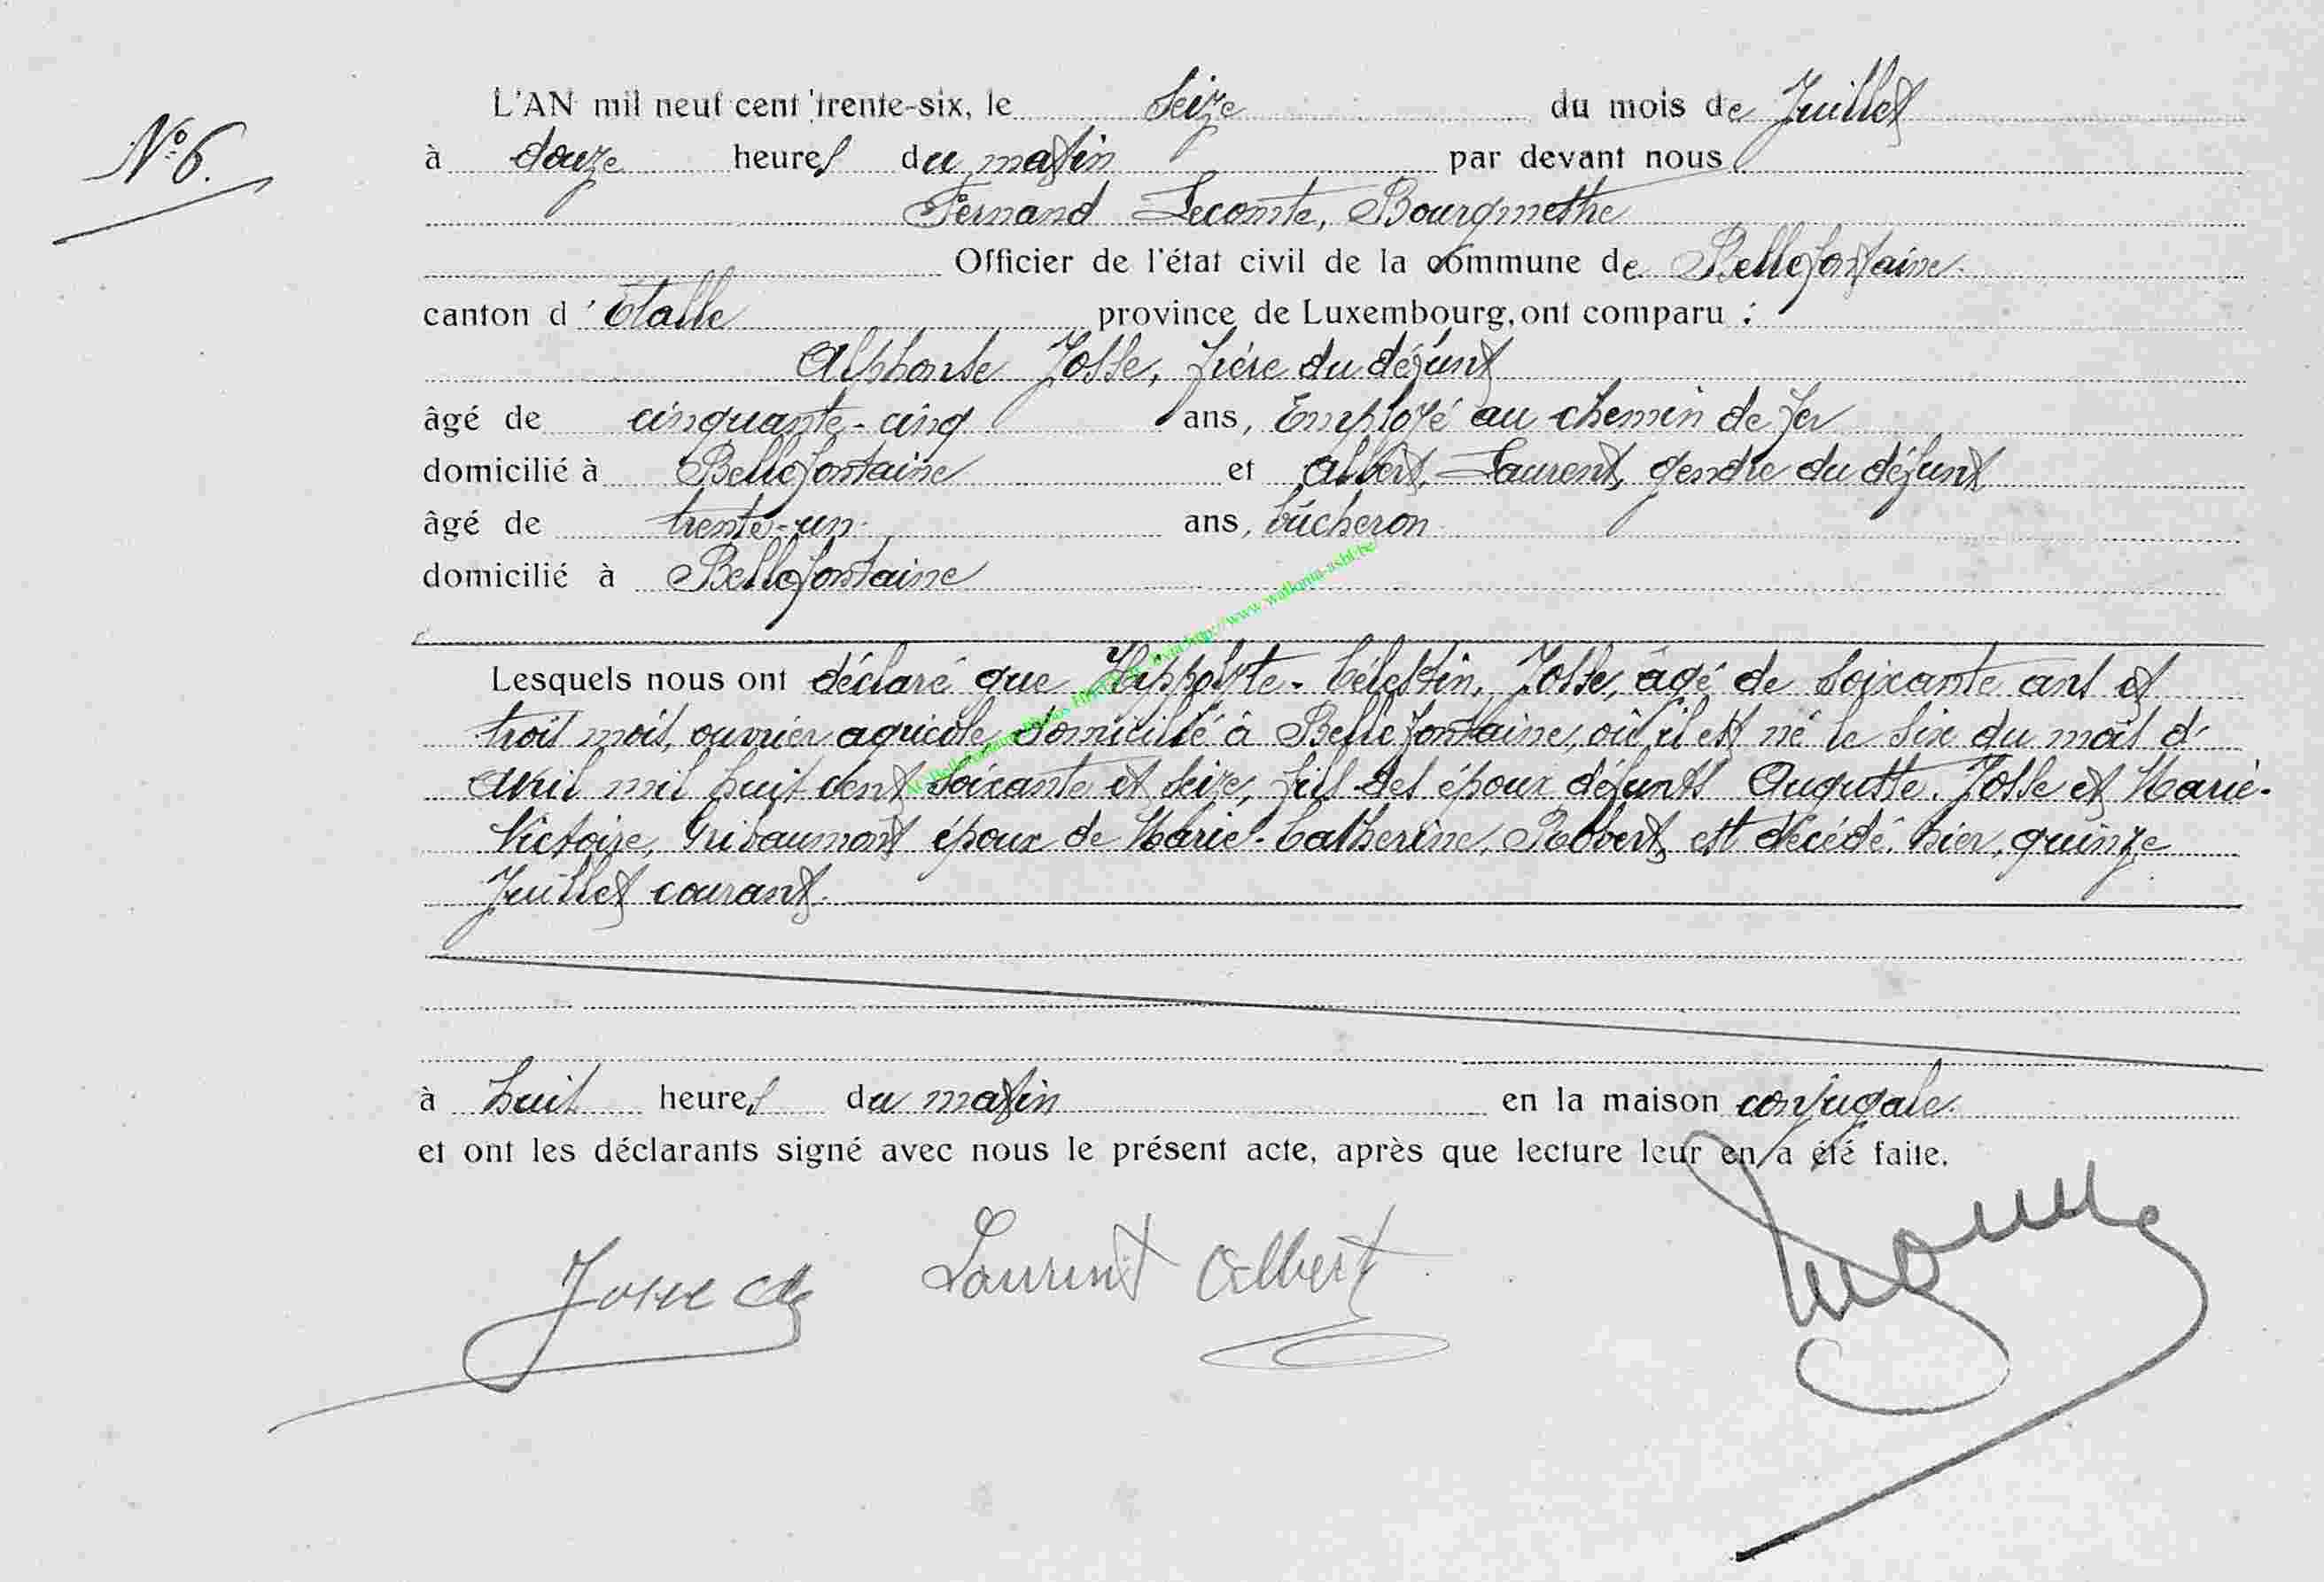 N° 6.
L'AN mil neuf cent trente-six, le seize du mois de Juillet
à douze heures du matin par devant nous
Fernand Lecomte, Bourgmestre
Officier de l'état civil de la commune de Bellefontaine.
canton d'Etalle province de Luxembourg, ont comparu :
Alphonse Josse, frère du défunt
âgé de cinquante-cinq ans, Employé au chemin de fer
domicilié à Bellefontaine et Albert, Laurent, gendre du défunt
âgé de trente-un ans, bûcheron
domicilié à Bellefontaine
Lesquels nous ont déclaré que Hippolyte-Célestin, Josse, âgé de soixante ans et
trois mois, ouvrier agricole domicilié à Bellefontaine, où il est né le six du mois d'
avril mil huit cent soixante et seize, fils des époux défunts Auguste, Josse et Marie-
Victoire, Gribaumont époux de Marie-Catherine, Robert, est décédé hier, quinze
Juillet courant.
à huit heures du matin en la maison conjugale.
et ont les déclarants signé avec nous le présent acte, après que lecture leur en a été faite.
Josse Laurent Albert